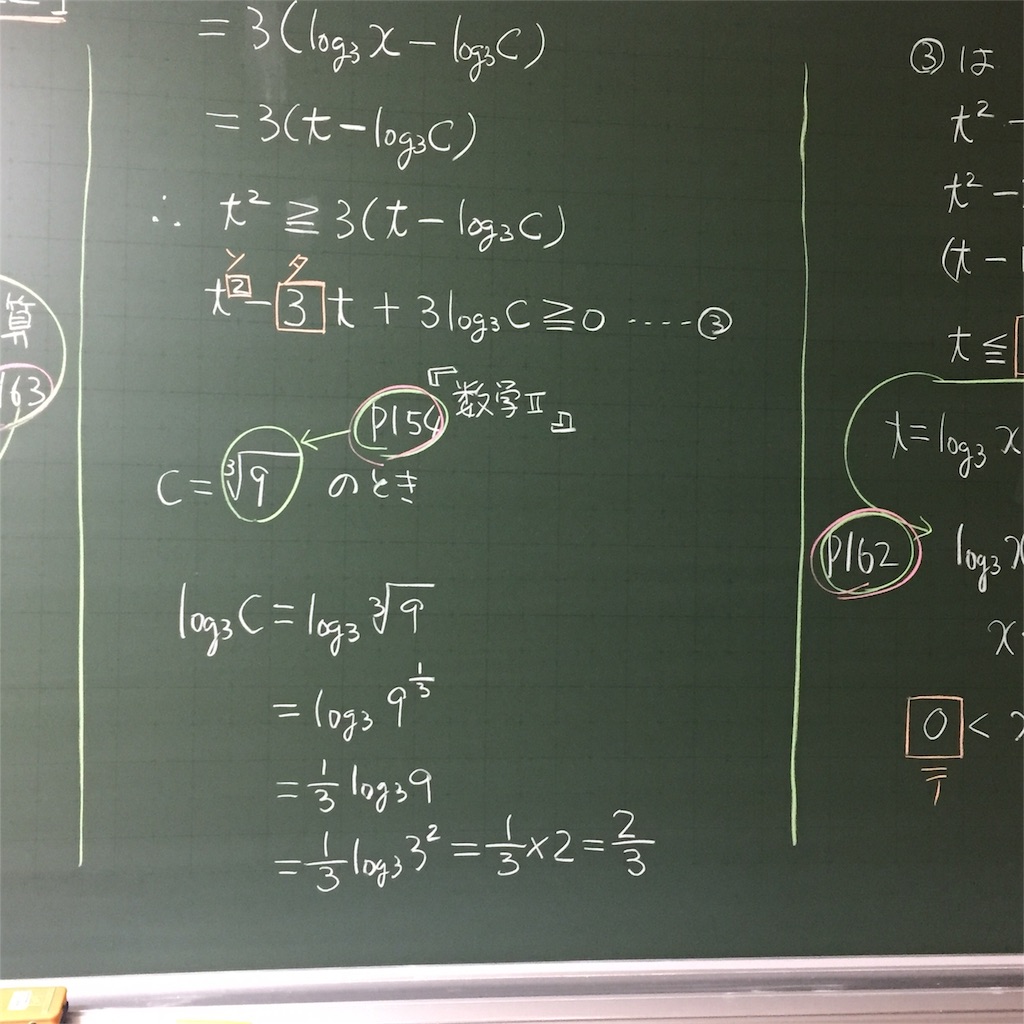 = 3(log₃x − log₃C)
= 3(t − log₃C)
∴ t² ≧ 3(t − log₃C)
ソ タ
t² − 3t + 3log₃C ≧ 0 ‥‥ ③
P154 『数学Ⅱ』
C = ³√9 のとき
log₃C = log₃ ³√9
= log₃ 9^(1/3)
= 1/3 log₃9
= 1/3 log₃3² = 1/3 × 2 = 2/3
算
163
③は
t² −
t² −
(t −
t ≦
t = log₃ x
P162
log₃ x
x
0 <
テ